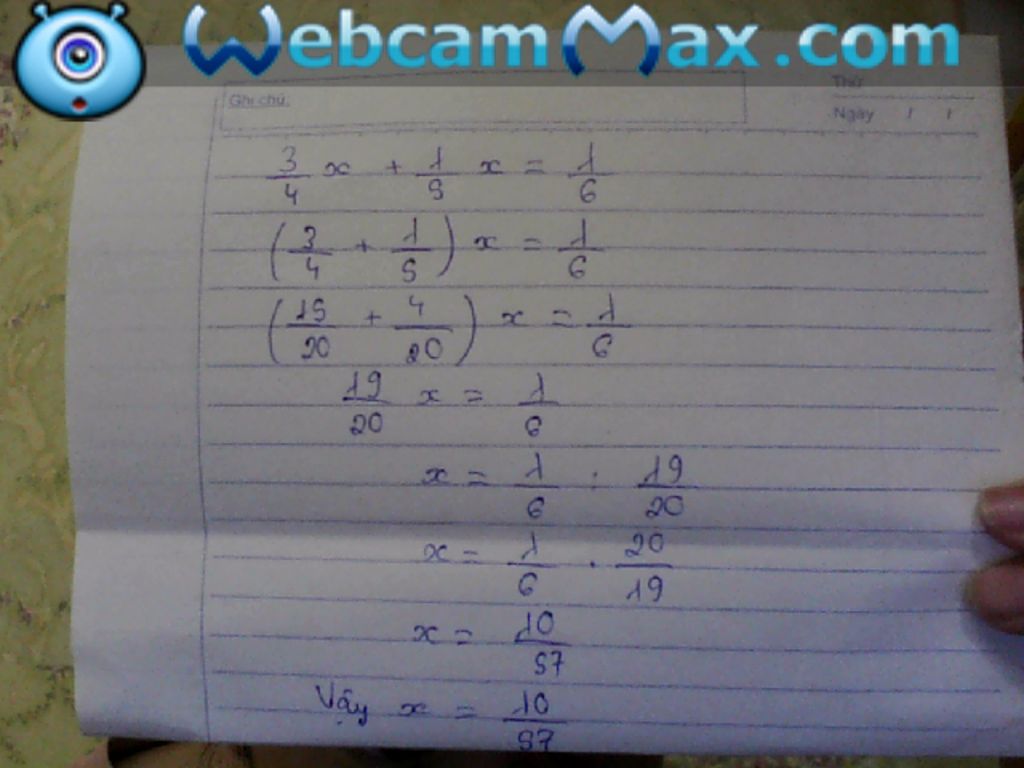 WebcamMax.com
Ghi chú:
Thứ
Ngày / /
3/4 x + 1/5 x = 1/6
(3/4 + 1/5) x = 1/6
(15/20 + 4/20) x = 1/6
19/20 x = 1/6
x = 1/6 : 19/20
x = 1/6 . 20/19
x = 10/57
Vậy x = 10/57